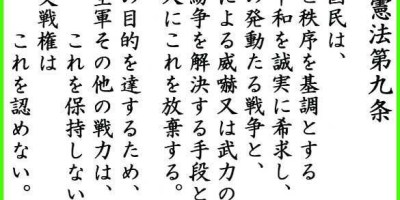 憲法第九条
国民は、
と秩序を基調とする
平和を誠実に希求し、
の発動たる戦争と、
による威嚇又は武力の
紛争を解決する手段と
久にこれを放棄する。
の目的を達するため、
空軍その他の戦力は、
これを保持しない
交戦権は
これを認めない。